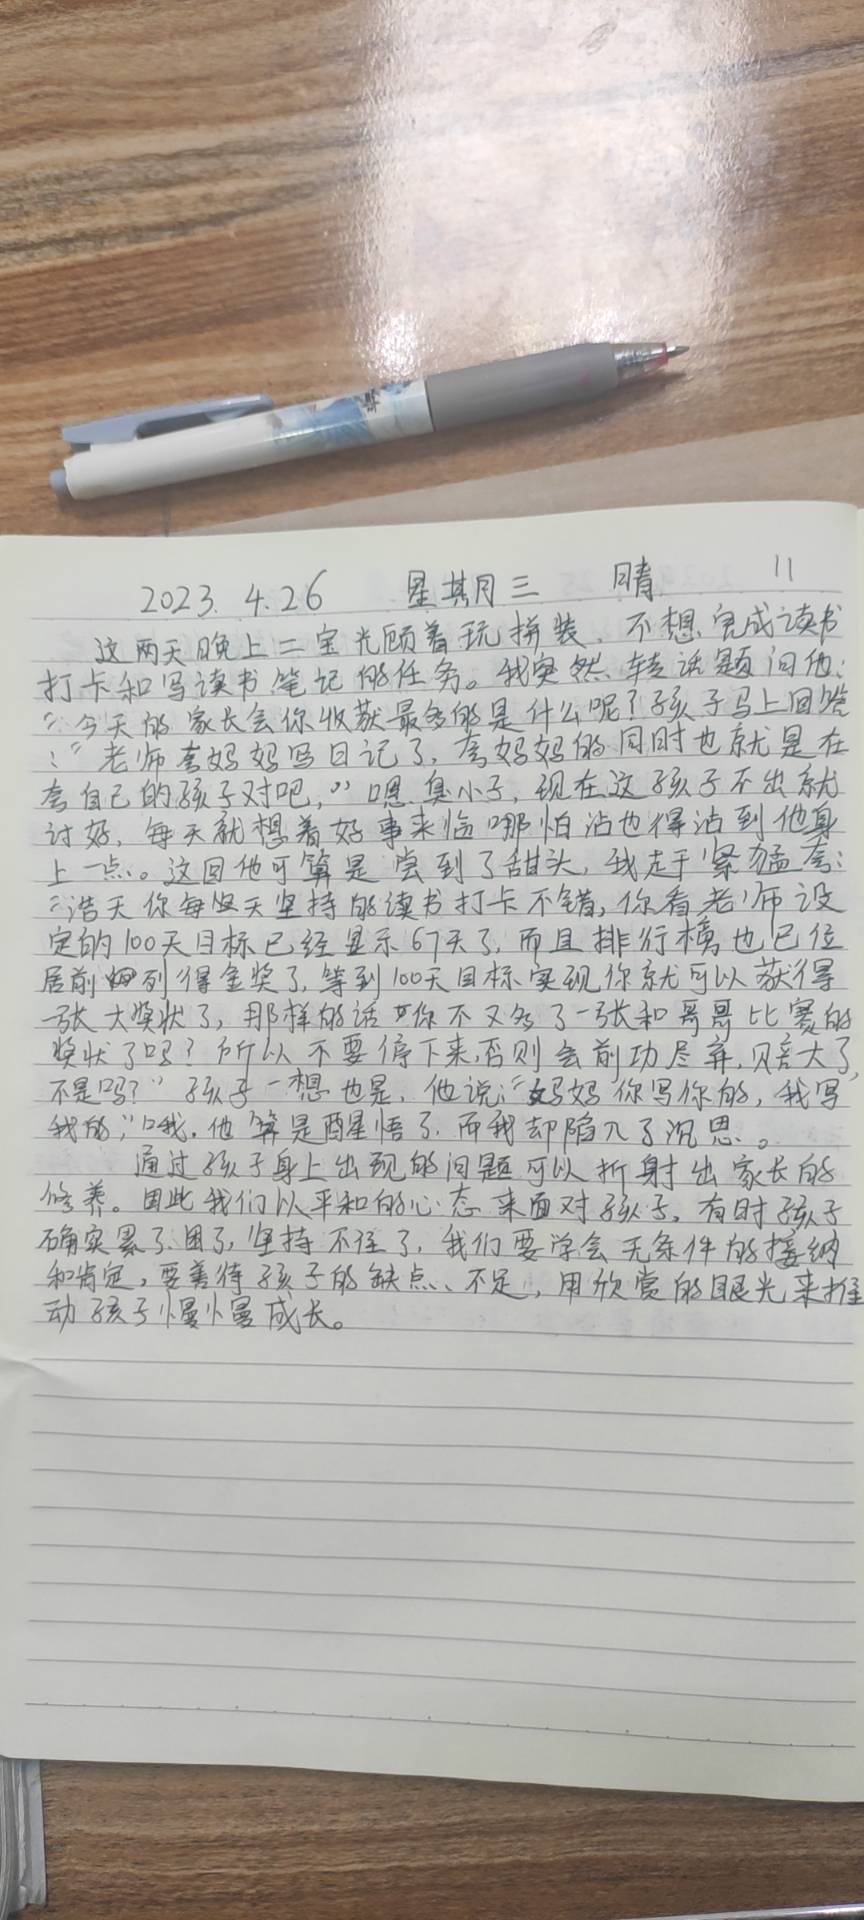 2023. 4.26 星期三 晴 11
这两天晚上二宝光顾着玩拼装、不想完成读书
打卡和写读书笔记的任务。我突然转话题问他:
“今天的家长会你收获最多的是什么呢?孩子马上回答
:“老师夸妈妈写日记了,夸妈妈的同时也就是在
夸自己的孩子对吧,”嗯.臭小子,现在这孩子不出就
讨好,每天就想着好事来临哪怕沾也得沾到他身
上一点。这回他可算是尝到了甜头,我赶紧猛夸:
“浩天你每天坚持的读书打卡不错,你看老师设
定的100天目标已经显示67天了,而且排行榜也已位
居前列得金奖了,等到100天目标实现你就可以获得
一张大奖状了,那样的话你不又多了一张和哥哥比赛的
奖状了吗?所以不要停下来,否则会前功尽弃,赔大了,
不是吗?”孩子一想也是,他说:“妈妈你写你的,我写
我的,”哦.他算是醒悟了.而我却陷入了沉思.。
通过孩子身上出现的问题可以折射出家长的
修养。因此我们以平和的心态来面对孩子,有时孩子
确实累了.困了,坚持不住了,我们要学会无条件的接纳
和肯定,要善待孩子的缺点、不足,用欣赏的眼光来推
动孩子慢慢成长。